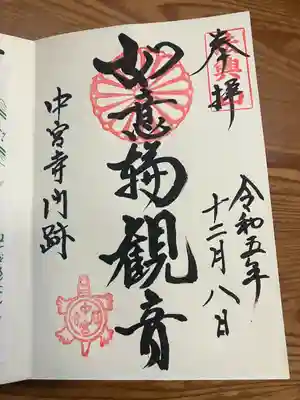 奉拝
令和五年
十二月八日
如意輪観音
中宮寺門跡